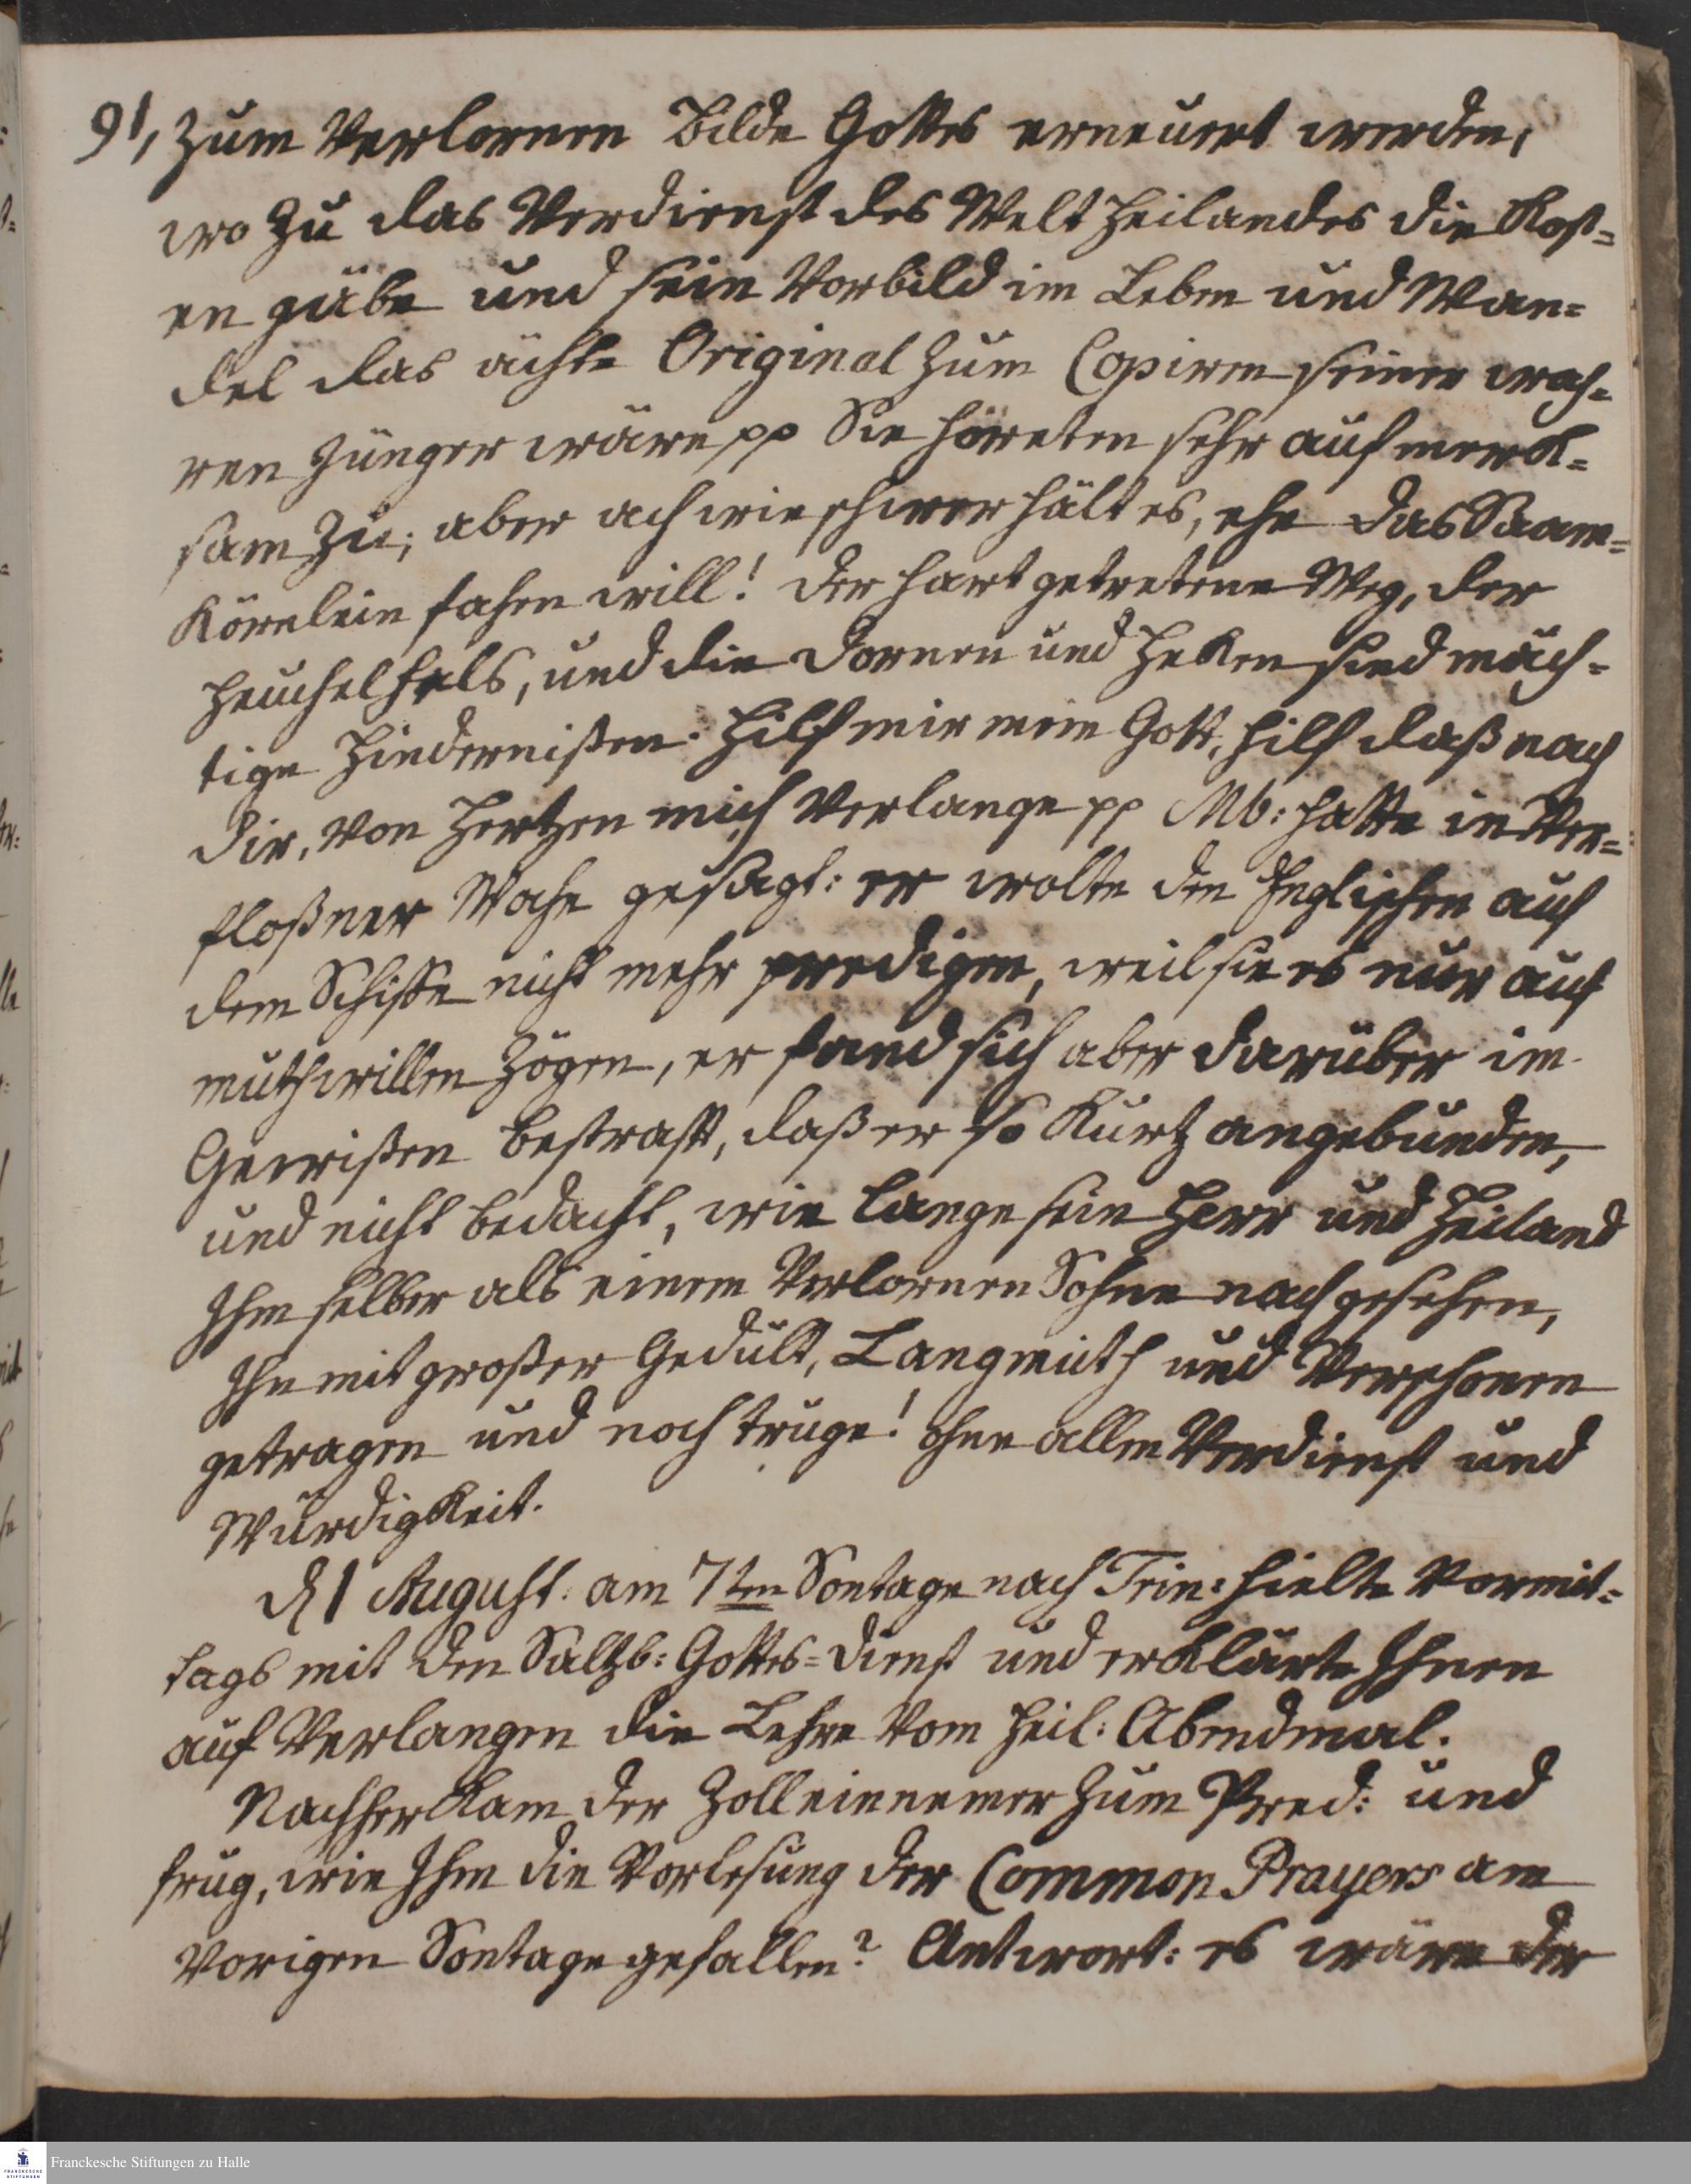 91, zum Verlornen Bilde Gottes erneuert werden,
wo zu das Verdienst des Welt Heilandes die Kost=
en gäbe und sein Vorbild im Leben und Wan=
del das ächte Original zum Copiren seiner wah=
ren Jünger wäre pp Sie höreten sehr aufmerk=
sam zu; aber ach wie schwer hält es, ehe das Saam=
Körnlein fahen will! der hart getretene Weg, der
Heuchelfels, und die Dornen und Heken sind mäch=
tige Hindernißen. Hilf mir mein Gott, hilf daß nach
dir, von Hertzen mich Verlange pp Mb: hatte in Ver=
floßner Woche gesagt: er wolte den Englischen auf
dem Schiffe nicht mehr predigen, weil sie es nur auf
muthwillen zögen, er fand sich aber darüber im
Gewißen bestraft, daß er so kurtz angebunden,
und nicht bedacht, wie lange sein Herr und Heiland
Ihm selber als einem Verlornen Sohne nachgesehen,
Ihn mit großer Gedult, Langmuth und Verschonen
getragen und noch trüge! ohne allen Verdienst und
Würdigkeit.
d 1 August: am 7ten Sontage nach Trin: hielte Vormit=
tags mit den Saltzb: Gottes=dienst und erklärte Ihnen
auf Verlangen die Lehre Vom heil: Abendmal.
Nachher kam der Zolleinnemer zum Pred: und
frug, wie Ihm die Vorlesung der Common Prayers am
Vorigen Sontage gefallen? Antwort: es wäre der
Franckesche Stiftungen zu Halle